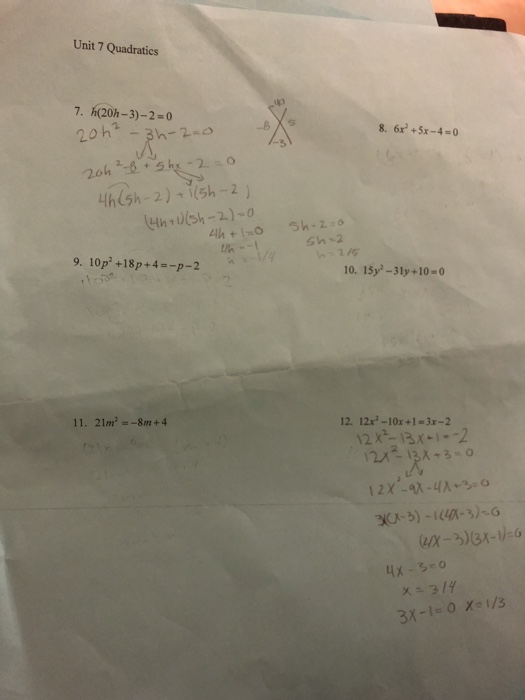 Unit 7 Quadratics
7. h(20h-3)-2=0
20h² - 3h-2=0
-8 5
-3
20h²-8 + 5h -2=0
4h(5h-2)+1(5h-2)
(4h+1)(5h-2)=0
4h+1=0
4h=-1
h=-1/4
5h-2=0
5h=2
h=2/5
8. 6x²+5x-4=0
9. 10p²+18p+4=-p-2
10. 15y²-31y+10=0
11. 21m²=-8m+4
12. 12x²-10x+1=3x-2
12x²-13x+1=-2
12x²-13x+3=0
12x²-9x-4x+3=0
-1(4x-3)=0
(4x-3)(3x-1)=0
4x-3=0
x=3/4
3x-1=0 x=1/3